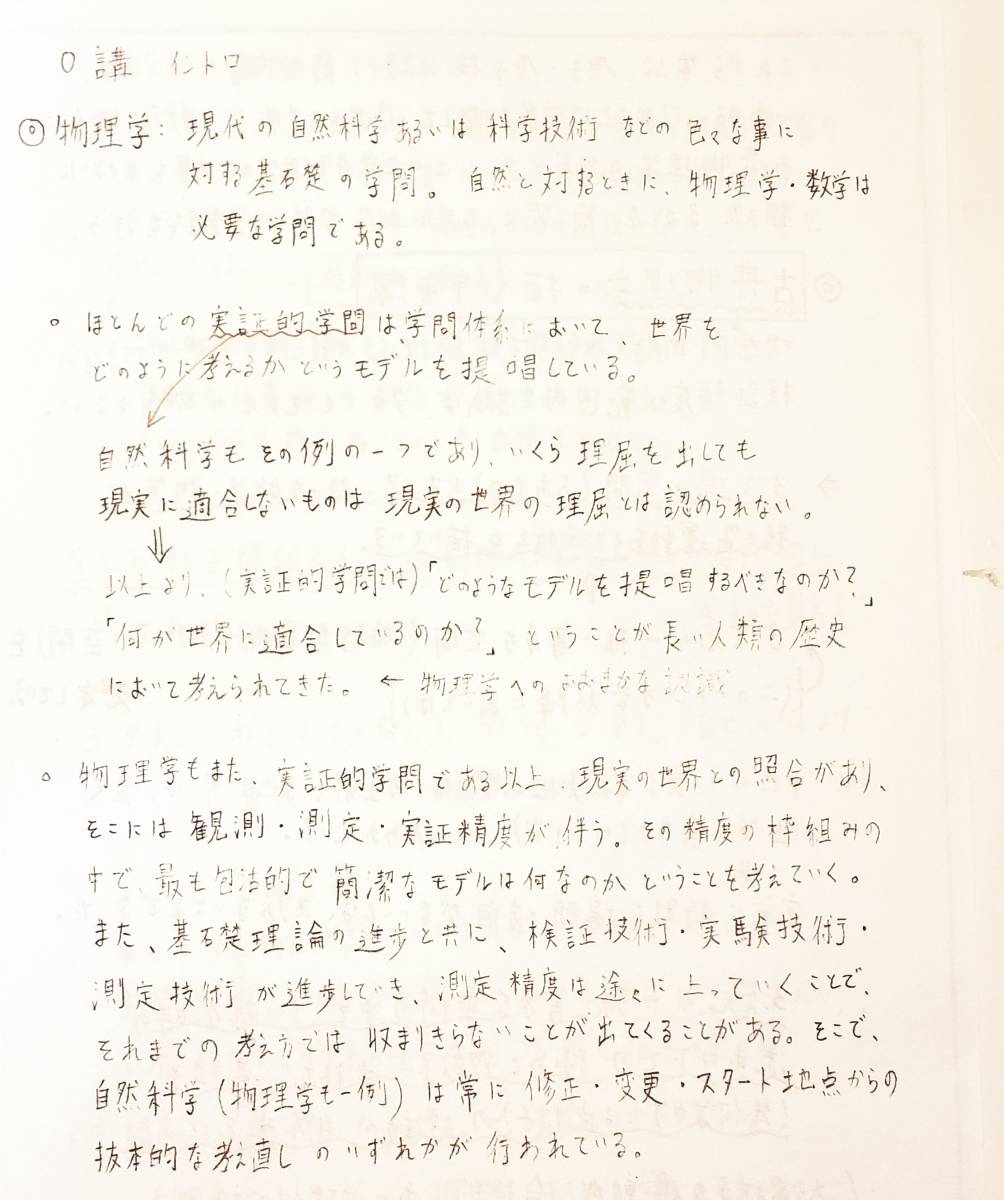 0講 イントロ
◎物理学: 現代の自然科学あるいは科学技術などの色々な事に
対する基礎の学問。自然と対するときに、物理学・数学は
必要な学問である。
。ほとんどの実証的学問は、学問体系において、世界を
どのように考えるかというモデルを提唱している。
自然科学もその例の一つであり、いくら理屈を出しても
現実に適合しないものは現実の世界の理屈とは認められない。
⇓
以上より、(実証的学問では)「どのようなモデルを提唱するべきなのか?」
「何が世界に適合しているのか?」ということが長い人類の歴史
において考えられてきた。 ← 物理学へのおおまかな認識
。物理学もまた、実証的学問である以上、現実の世界との照合があり、
そこには観測・測定・実証精度が伴う。その精度の枠組みの
中で、最も包括的で簡潔なモデルは何なのかということを考えていく。
また、基礎理論の進歩と共に、検証技術・実験技術・
測定技術が進歩していき、測定精度は途々に上っていくことで、
それまでの考え方では収まりきらないことが出てくることがある。そこで、
自然科学(物理学も一例)は常に修正・変更・スタート地点からの
抜本的な考え直しのいずれかが行われている。